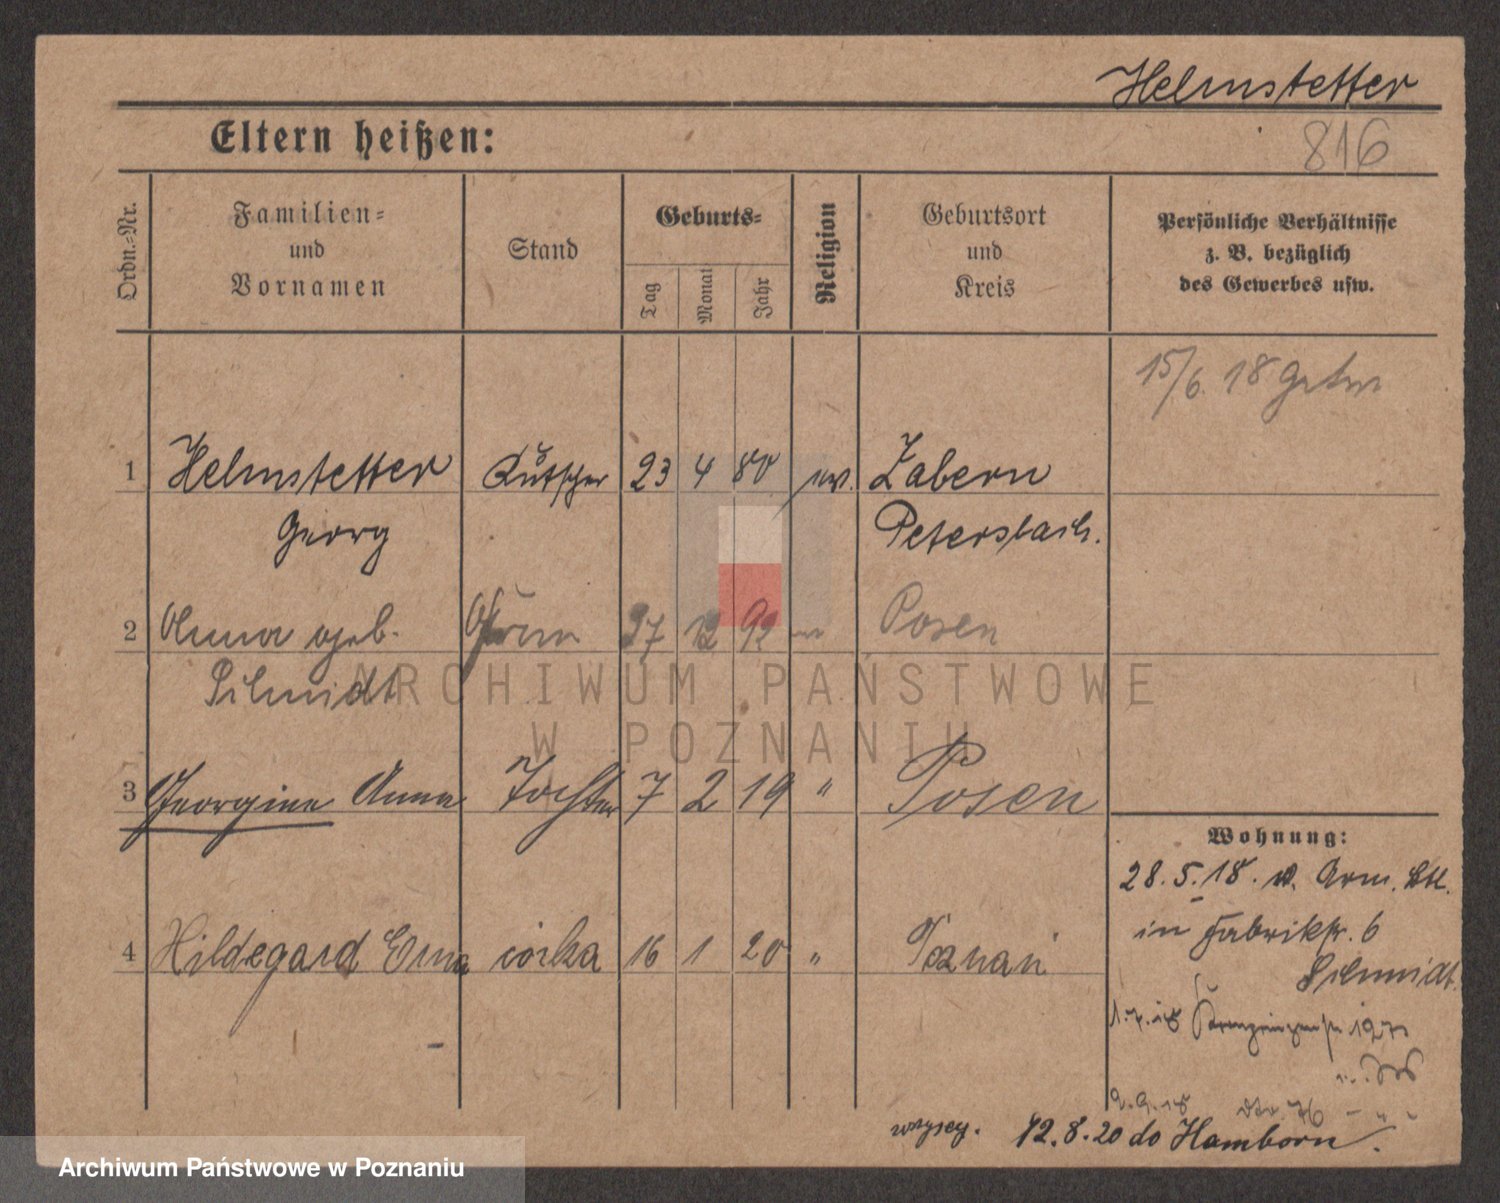 Helmstetter
Eltern heißen:
816
Ordn.-Nr.
Familien-
und
Vornamen
Stand
Geburts-
Tag
Monat
Jahr
Religion
Geburtsort
und
Kreis
Persönliche Verhältnisse
z. B. bezüglich
des Gewerbes usw.
15/6. 18
1 Helmstetter Kutscher 23 4 80 ev. Zabern
Georg Petersbach.
2 Anna geb. Frau 27 12 92 Posen
Schmidt
3 Georgine Anna Tochter 7 2 19 " Posen
4 Hildegard Erna córka 16 1 20 " Poznań
Wohnung:
28.5.18. v. Arm. Btl.
in Fabrikstr. 6
Schmidt.
1.7.18
2.9.18
12.8.20 do Hamborn.
ARCHIWUM PAŃSTWOWE
W POZNANIU
Archiwum Państwowe w Poznaniu